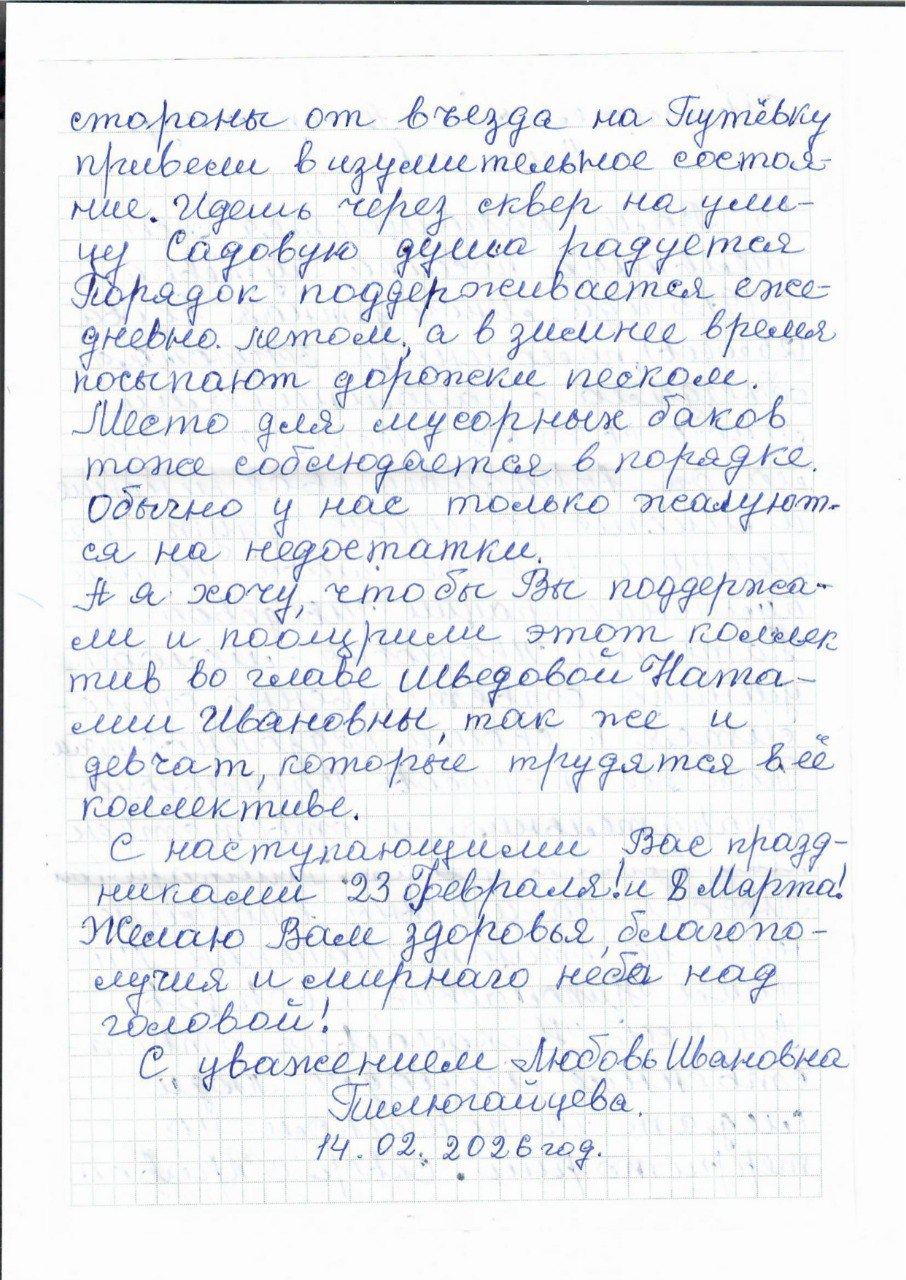 стороны от въезда на Путёвку
привели в изумительное состоя-
ние. Идешь через сквер на ули-
цу Садовую душа радуется
Порядок поддерживается еже-
дневно. летом, а в зимнее время
посыпают дорожки песком.
Место для мусорных баков
тоже соблюдается в порядке.
Обычно у нас только жалуют-
ся на недостатки.
А я хочу, чтобы Вы поддержа-
ли и поощрили этот коллек
тив во главе Шведовой Ната-
лии Ивановны, так же и
девчат, которые трудятся в её
коллективе.
С наступающими Вас празд-
никами 23 Февраля! и 8 Марта!
Желаю Вам здоровья, благопо-
лучия и мирнаго неба над
головой!
С уважением Любовь Ивановна
Пилюгайцева.
14.02.2026 год.